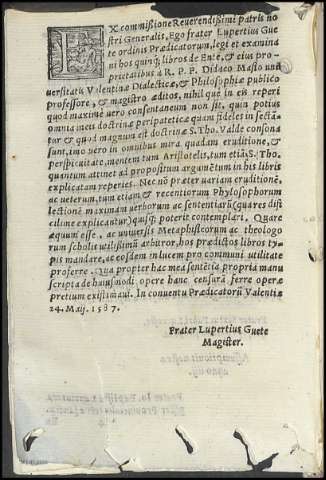 EX commißione Reuerendißimi patris no
stri Generalis, Ego frater Lupertius Gue
te ordinis Prædicatorum, legi et examina
ui hos quinq; libros de Ente, & eius pro
prietatibus à R. P. F. Didaco Masio uni
uersitatis Valentinæ Dialecticæ, & Philosophiæ publico
professore, & magistro æditos, nihil que in eis reperi
quod maximè uero consentaneum non sit. quin potius
omnia in eis doctrinæ peripateticæ quam fideles in secta-
tur & quod magnum est doctrinæ S. Tho. Valde consona
sunt, imo uero in omnibus mira quadam eruditione, &
perspicuitate, mentem tum Aristotelis, tum etiã S. Tho.
quantum attinet ad propositum argumẽtum in his libris
explicatam reperies. Nec nõ præter uariam eruditionẽ,
ac ueterum, tum etiam & recentiorum Phylosophorum
lectionẽ maximam uerborum ac sententiarũ (quæ res diffi
cilime explicantur) quisq; poterit contemplari. Quare
æquum esse. ac uniuersis Metaphisicorum ac theologo
rum scholis utilißimũ arburor, hos prædictos libros ty-
pis mandare, ac eosdem in lucem pro communi utilitate
proferre. Qua propter hac mea sentẽtia propria manu
scripta de huiusmodi opere hanc censurã ferre operæ
pretium existimaui. In conuentu Prædicatorũ Valentiæ
24. Maij. 1587.
Frater Lupertius Guete
Magister.